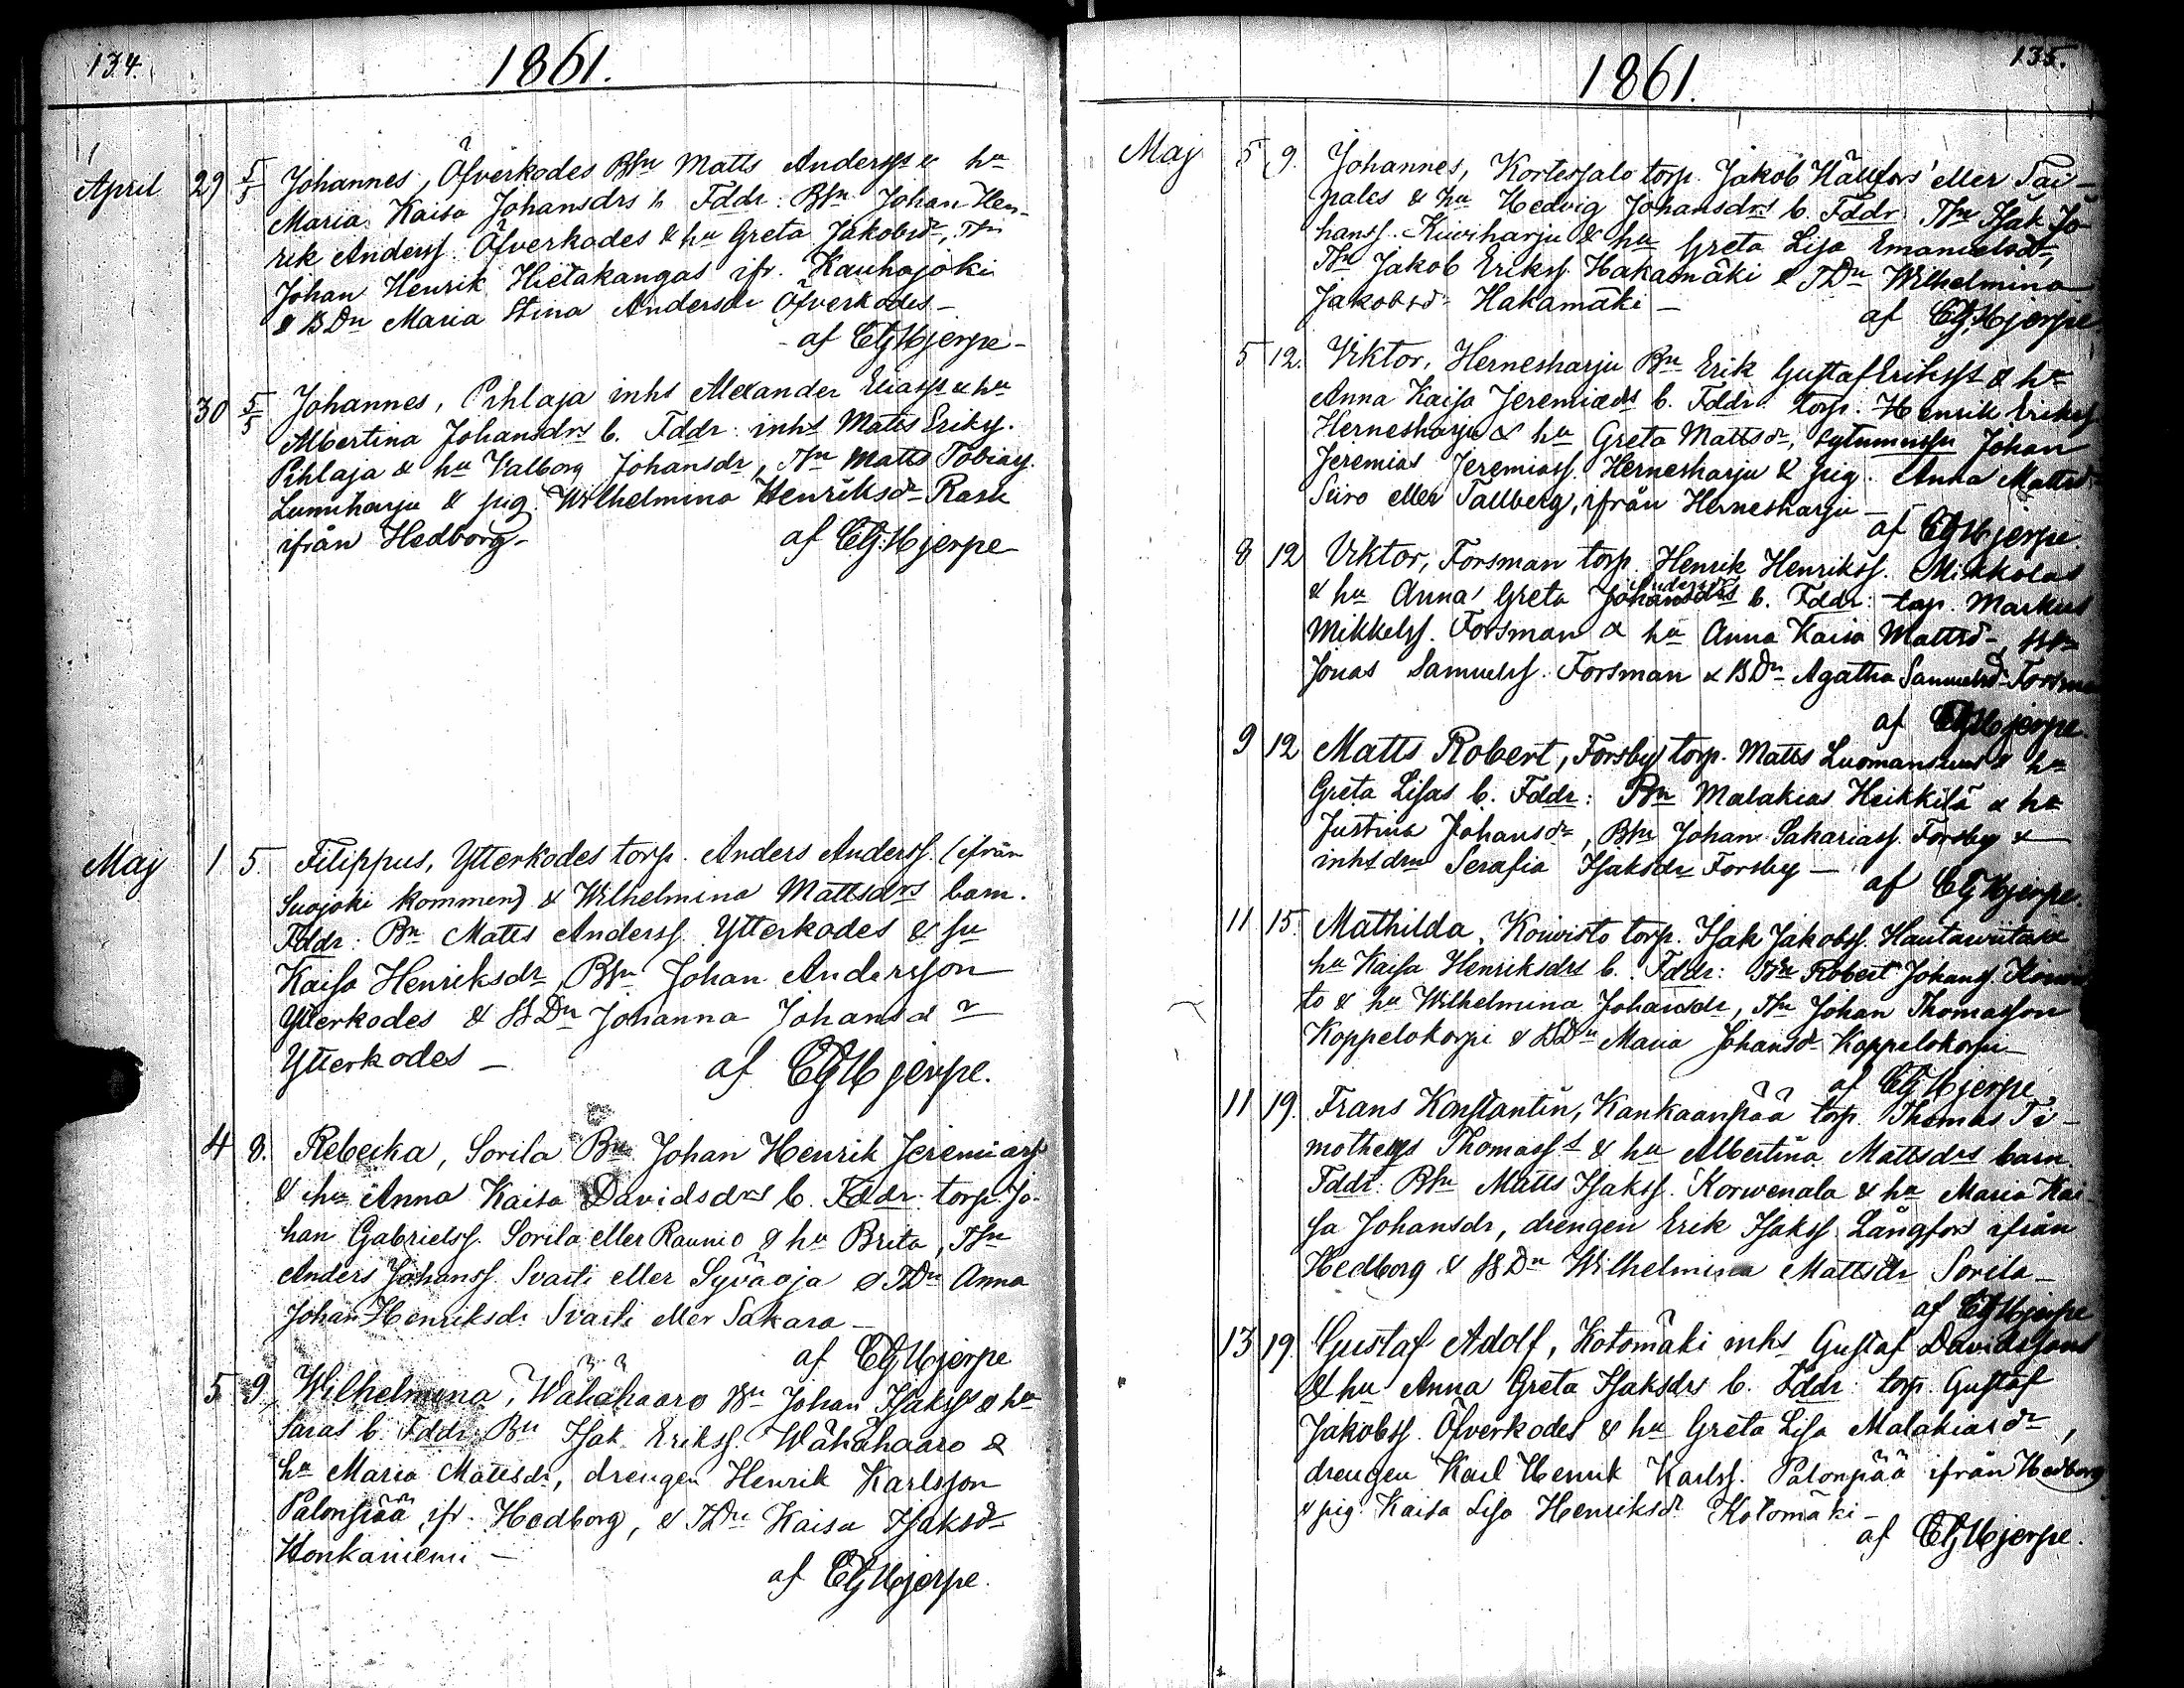 134.
1861.
April 29 5/5 Johannes, Öfverkodes Bsn Matts Anderss:s & hu
Maria Kaisa Johansdrs b. Fddr: Bsn Johan Hen-
rik Anderss. Öfverkodes & hu Greta Jakobsdr, Tsn
Johan Henrik Hietakangas ifr. Kauhajoki
& BDn Maria Stina Andersdr Öfverkodes –
– af CGHjerpe –
30 5/5 Johannes, Pihlaja inhs Alexander Eliass:s & hu
Albertina Johansdrs b. Fddr: inhs Matts Erikss.
Pihlaja & hu Valborg Johansdr, Tsn Matts Tobiass.
Lumiharju & pig. Wilhelmina Henriksdr Rask
ifrån Hedborg –
af CGHjerpe
Maj 1 5. Filippus, Ytterkodes torp. Anders Anderss. (ifrån
Suojoki kommen) & Wilhelmina Mattsdrs barn.
Fddr: Bn Matts Anderss. Ytterkodes & hu
Kaisa Henriksdr, Bsn Johan Andersson
Ytterkodes & BDn Johanna Johansdr
Ytterkodes –
af CGHjerpe.
4 8. Rebecka, Sorila Bn Johan Henrik Jeremiass:s
& hu Anna Kaisa Davidsdrs b. Fddr: torp. Jo-
han Gabrielss. Sorila eller Raunio & hu Brita, Tsn
Anders Johanss. Svarti eller Syväoja & TDn Anna
Johan Henriksdr Svarti eller Sakara –
af CGHjerpe
5 9. Wilhelmina, Wähähaaro Bn Johan Isakss:s & hu
Saras b. Fddr: Bn Isak Erikss. Wähähaaro &
hu Maria Mattsdr, drengen Henrik Karlsson
Palonpää ifr. Hedborg, & TDn Kaisa Isaksdr
Honkaniemi –
af CGHjerpe.
135.
1861.
Maj 5 9. Johannes, Kortesalo torp. Jakob Hällfors' eller Tai-
pales & hu Hedvig Johansdrs b. Fddr: Tsn Isak Jo-
hanss. Kiviharju & hu Greta Lisa Emanuelsdr,
Tsn Jakob Erikss. Hakamäki & TDn Wilhelmina
Jakobsdr Hakamäki –
af CGHjerpe
5 12. Viktor, Hernesharju Bn Erik Gustaf Erikss:s & hu
Anna Kaisa Jeremiæds b. Fddr: torp. Henrik Erikss.
Hernesharju & hu Greta Mattsdr, Johan
Jeremias Jeremiass. Hernesharju & pig. Anna Mattsdr
Siiro eller Tallberg, ifrån Hernesharju –
af CGHjerpe.
8 12 Viktor, Forsman torp. Henrik Henrikss. Mikkolas
& hu Anna Greta Johansdrs Andersdrs b. Fddr: torp. Markus
Mikkelss. Forsman & hu Anna Kaisa Mattsdr,
Jonas Samuelss. Forsman & BDn Agatha Samuelsdr Forsman
af CGHjerpe.
9 12 Matts Robert, Forsby torp. Matts Luomansuus & hu
Greta Lisas b. Fddr: Bn Malakias Heikkilä & hu
Justina Johansdr, Bsn Johan Sakariass. Forsby &
inhsdrn Serafia Isaksdr Forsby –
af CGHjerpe.
11 15. Mathilda, Koivisto torp. Isak Jakobss. Hautaviitas &
hu Kaisa Henriksdrs b. Fddr: Bn Robert Johanss. Koivis-
to & hu Wilhelmina Johansdr, Tsn Johan Thomasson
Koppelokorpi & TDn Maria Johansdr Koppelokorpi –
af CGHjerpe
11 19. Frans Konstantin, Kankaanpää torp. Thomas Ti-
motheus Thomass:s & hu Albertina Mattsdrs barn.
Fddr: Bsn Matts Isakss. Korwenala & hu Maria Kai-
sa Johansdr, drengen Erik Isakss. Långfors ifrån
Hedborg & BDn Wilhelmina Mattsdr Sorila –
af CGHjerpe
13 19. Gustaf Adolf, Kotomäki inhs Gustaf Davidssons
& hu Anna Greta Isaksdrs b. Fddr: torp. Gustaf
Jakobss. Öfverkodes & hu Greta Lisa Malakiasdr,
drengen Karl Henrik Karlss. Palonpää ifrån Hedborg
& pig. Kaisa Lisa Henriksdr Kotomäki –
af CGHjerpe.